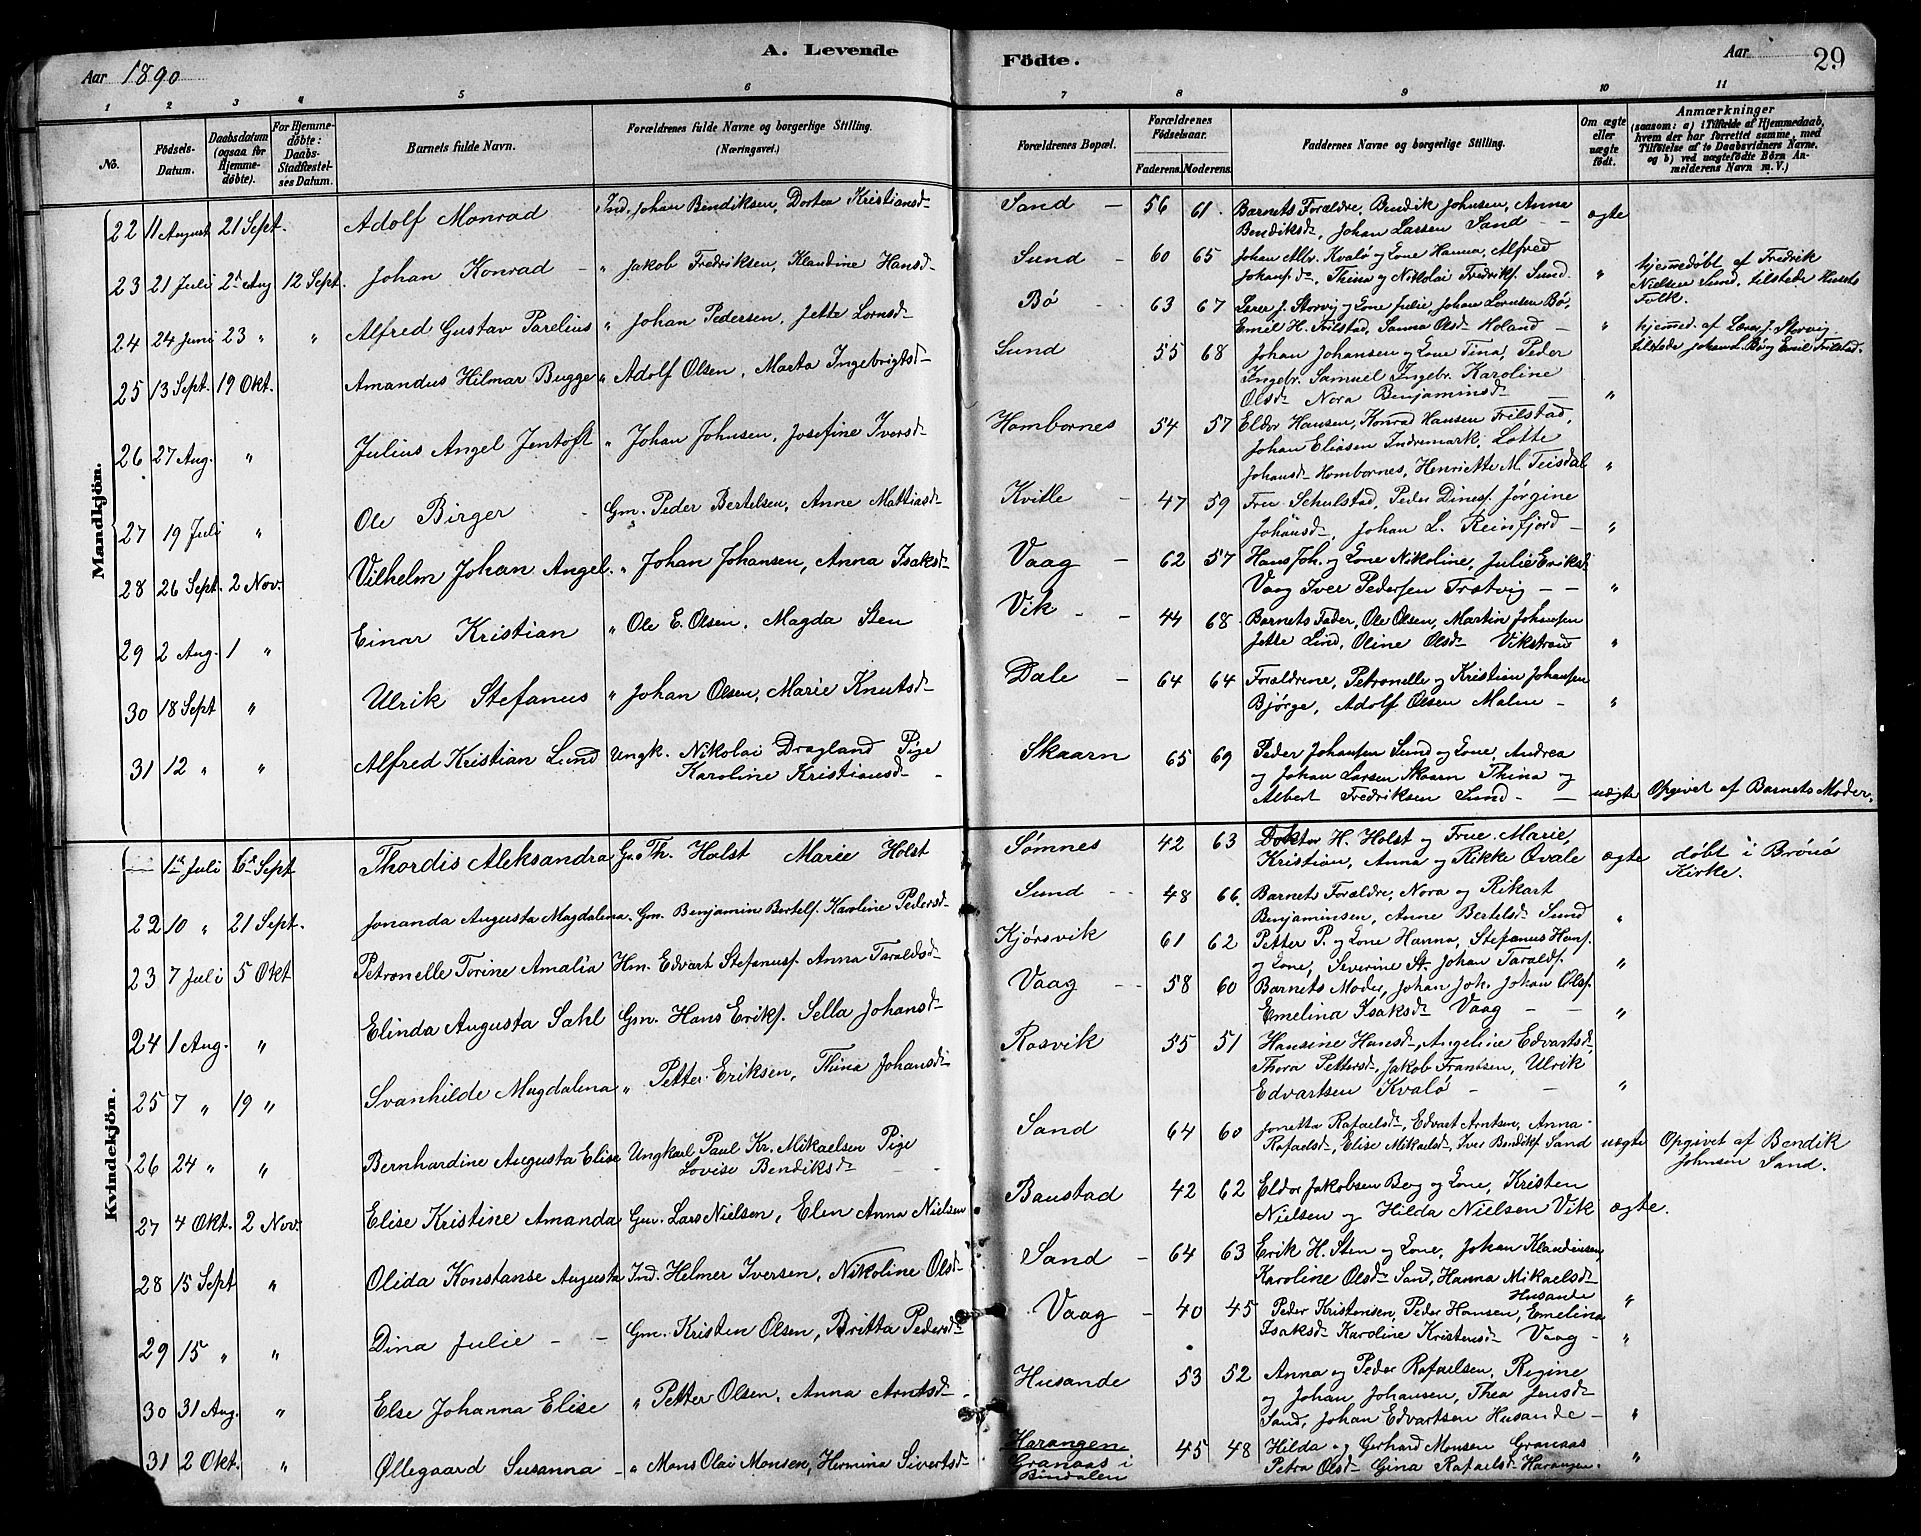 Aar 1890
A. Levende
Födte.
Aar
29
1 2 3 4 5 6 7 8 9 10 11
No.
Födsels-Datum.
Daabsdatum (ogsaa for Hjemme-døbte).
For Hjemme-døbte: Daabs-Stadfæstel-ses Datum.
Barnets fulde Navn.
Forældrenes fulde Navne og borgerlige Stilling. (Næringsvei.)
Forældrenes Bopæl.
Forældrenes Födselsaar.
Faderens. Moderens.
Faddernes Navne og borgerlige Stilling.
Om ægte eller uægte født.
Anmærkninger
(saasom: a) i Tilfælde af Hjemmedaab, hvem der har forrettet samme, med Tilföielse af to Daabsvidners Navne, og b) ved uægtefödte Börn An-melderens Navn m.V.)
Mandkjön.
22 11 August 21 Sept. Adolf Monrad Ind. Johan Bendiksen, Dortea Kristiansd Sand 56 61. Barnets Forældre, Bendik Johnsen, Anna
Bendiksd, Johan Larsen Sand ægte
23 21 Juli 2 Aug 12 Sept. Johan Konrad " Jakob Fredriksen, Klaudine Hansd Sund 60 65 Johan Alb. Kvalø og Kone Hanna, Alfred
Johansd, Thina og Nikolai Fredriks. Sund. " hjemmedøbt af Fredrik
Nielsen Sund, tilstede Husets
Folk.
24 24 Juni 23 " " Alfred Gustav Parelius " Johan Pedersen, Jette Lornsd Bø 63 67 Lærer J. Storvig og Kone Julie, Johan Lornsen Bø,
Emil H. Frilstad, Sanna Olsd Holand " hjemmed. af Lærer J. Storvig.
tilstede Johan L. Bø og Emil Frilstad.
25 13 Sept. 19 Okt. Amandus Hilmar Bugge " Adolf Olsen, Marta Ingebrigtsd Sund 55 68 Johan Johansen og Kone Tina, Peder
Ingebr. Samuel Ingebr. Karoline
Olsd Nora Benjaminsd "
26 27 Aug. " Julius Angel Jentoft " Johan Johnsen, Josefine Iversd Hombornes 54 57 Eldor Hansen, Konrad Hansen Frilstad,
Johan Eliasen Indremark, Lotte
Johansd Hombornes, Henriette M. Teisdal "
27 19 Juli " Ole Birger Gm. Peder Bertelsen, Anne Mattiasd Kvitle 47 59 Fru Schulstad, Peder Dines. Jørgine
Johansd, Johan L. Reinsfjord "
28 26 Sept. 2 Nov. Vilhelm Johan Angel. " Johan Johansen, Anna Isaksd Vaag 62 57 Hans Joh. og Kone Nikoline, Julie Eriksd
Vaag Iver Pedersen Trætvig "
29 2 Aug. 1 " Einar Kristian " Ole E. Olsen, Magda Sten Vik 44 68 Barnets Fader, Ole Olsen, Martin Johansen
Jette Lind, Oline Olsd Vikstrand "
30 18 Sept " Ulrik Stefanus " Johan Olsen, Marie Knutsd Dale 64 64 Forældrene, Petronelle og Kristian Johansen
Bjørge, Adolf Olsen Malm "
31 12 " " Alfred Kristian Lund Ungk. Nikolai Dragland Pige
Karoline Kristiansd Skaarn 65 69 Peder Johansen Sund og Kone, Andrea
og Johan Larsen Skaarn Thina og
Albert Fredriksen Sund uægte Opgivet af Barnets Moder.
Kvindekjön.
1 Juli 6 Sept Thordis Aleksandra Gr. Th. Holst Marie Holst Sømnes 42 63 Doktor H. Holst og Frue Marie,
Kristian, Anna og Rikke Qvale ægte døbt i Brønø
Kirke.
22 10 " 21 Sept. Jonanda Augusta Magdalena. Gm. Benjamin Bertels. Karoline Pedersd Sund 48 66. Barnets Forældre, Nora og Rikart
Benjaminsen, Anne Bertelsd Sund "
23 7 Juli 5 Okt Petronelle Torine Amalia Hm. Edvart Stefanus. Anna Taraldsd Kjørsvik 61 62 Petter P. og Kone Hanna, Stefanus Hans.
og Kone, Severine St. Johan Taralds. "
24 1 Aug. " Elinda Augusta Sahl Gm. Hans Eriks. Sella Johansd Vaag 58 60 Barnets Moder, Johan Joh. Johan Ols.
Emelina Isaksd Vaag "
25 7 " 19 " Svanhilde Magdalena " Petter Eriksen, Thina Johansd Rosvik 55 51 Hansine Hansd, Angeline Edvartsd,
Thora Pettersd, Jakob Frantsen, Ulrik
Edvartsen Kvalø "
26 24 " " Bernhardine Augusta Elise Ungkarl Paul Kr. Mikaelsen Pige
Lovise Bendiksd Sand 64 60 Jonetta Rafaelsd, Edvart Arntsen, Anna
Rafaelsd, Elise Mikaelsd, Iver Bendiks. Sand uægte Opgivet af Bendik
Johnsen Sand.
27 4 Okt. 2 Nov. Elise Kristine Amanda Gm. Lars Nielsen, Elen Anna Nielsen Baustad 42 62 Eldor Jakobsen Berg og Kone, Kristen
Nielsen og Hilda Nielsen Vik ægte.
28 15 Sept " Olida Konstanse Augusta Ind. Helmer Iversen, Nikoline Olsd Sand 64 63 Erik H. Sten og Kone, Johan Klaudiusen,
Karoline Olsd Sand, Hanna Mikaelsd
Husande "
29 15 " " Dina Julie Gm. Kristen Olsen, Britta Pedersd Vaag 40 45 Peder Kristensen, Peder Hansen, Emelina
Isaksd Karoline Kristensd Vaag "
30 31 Aug. " Else Johanna Elise " Petter Olsen, Anna Arntsd Husande 53 52 Anna og Peder Rafaelsen, Regine
og Johan Johansen, Thea Jensd
Sand, Johan Edvartsen Husande "
31 2 Okt. " Øllegaard Susanna " Mons Olai Monsen, Hermina Sivertsd Harangen
Granaas i
Bindalen 45 48 Hilda og Gerhard Monsen Granaas
Petra Olsd Gina Rafaelsd Harangen. "